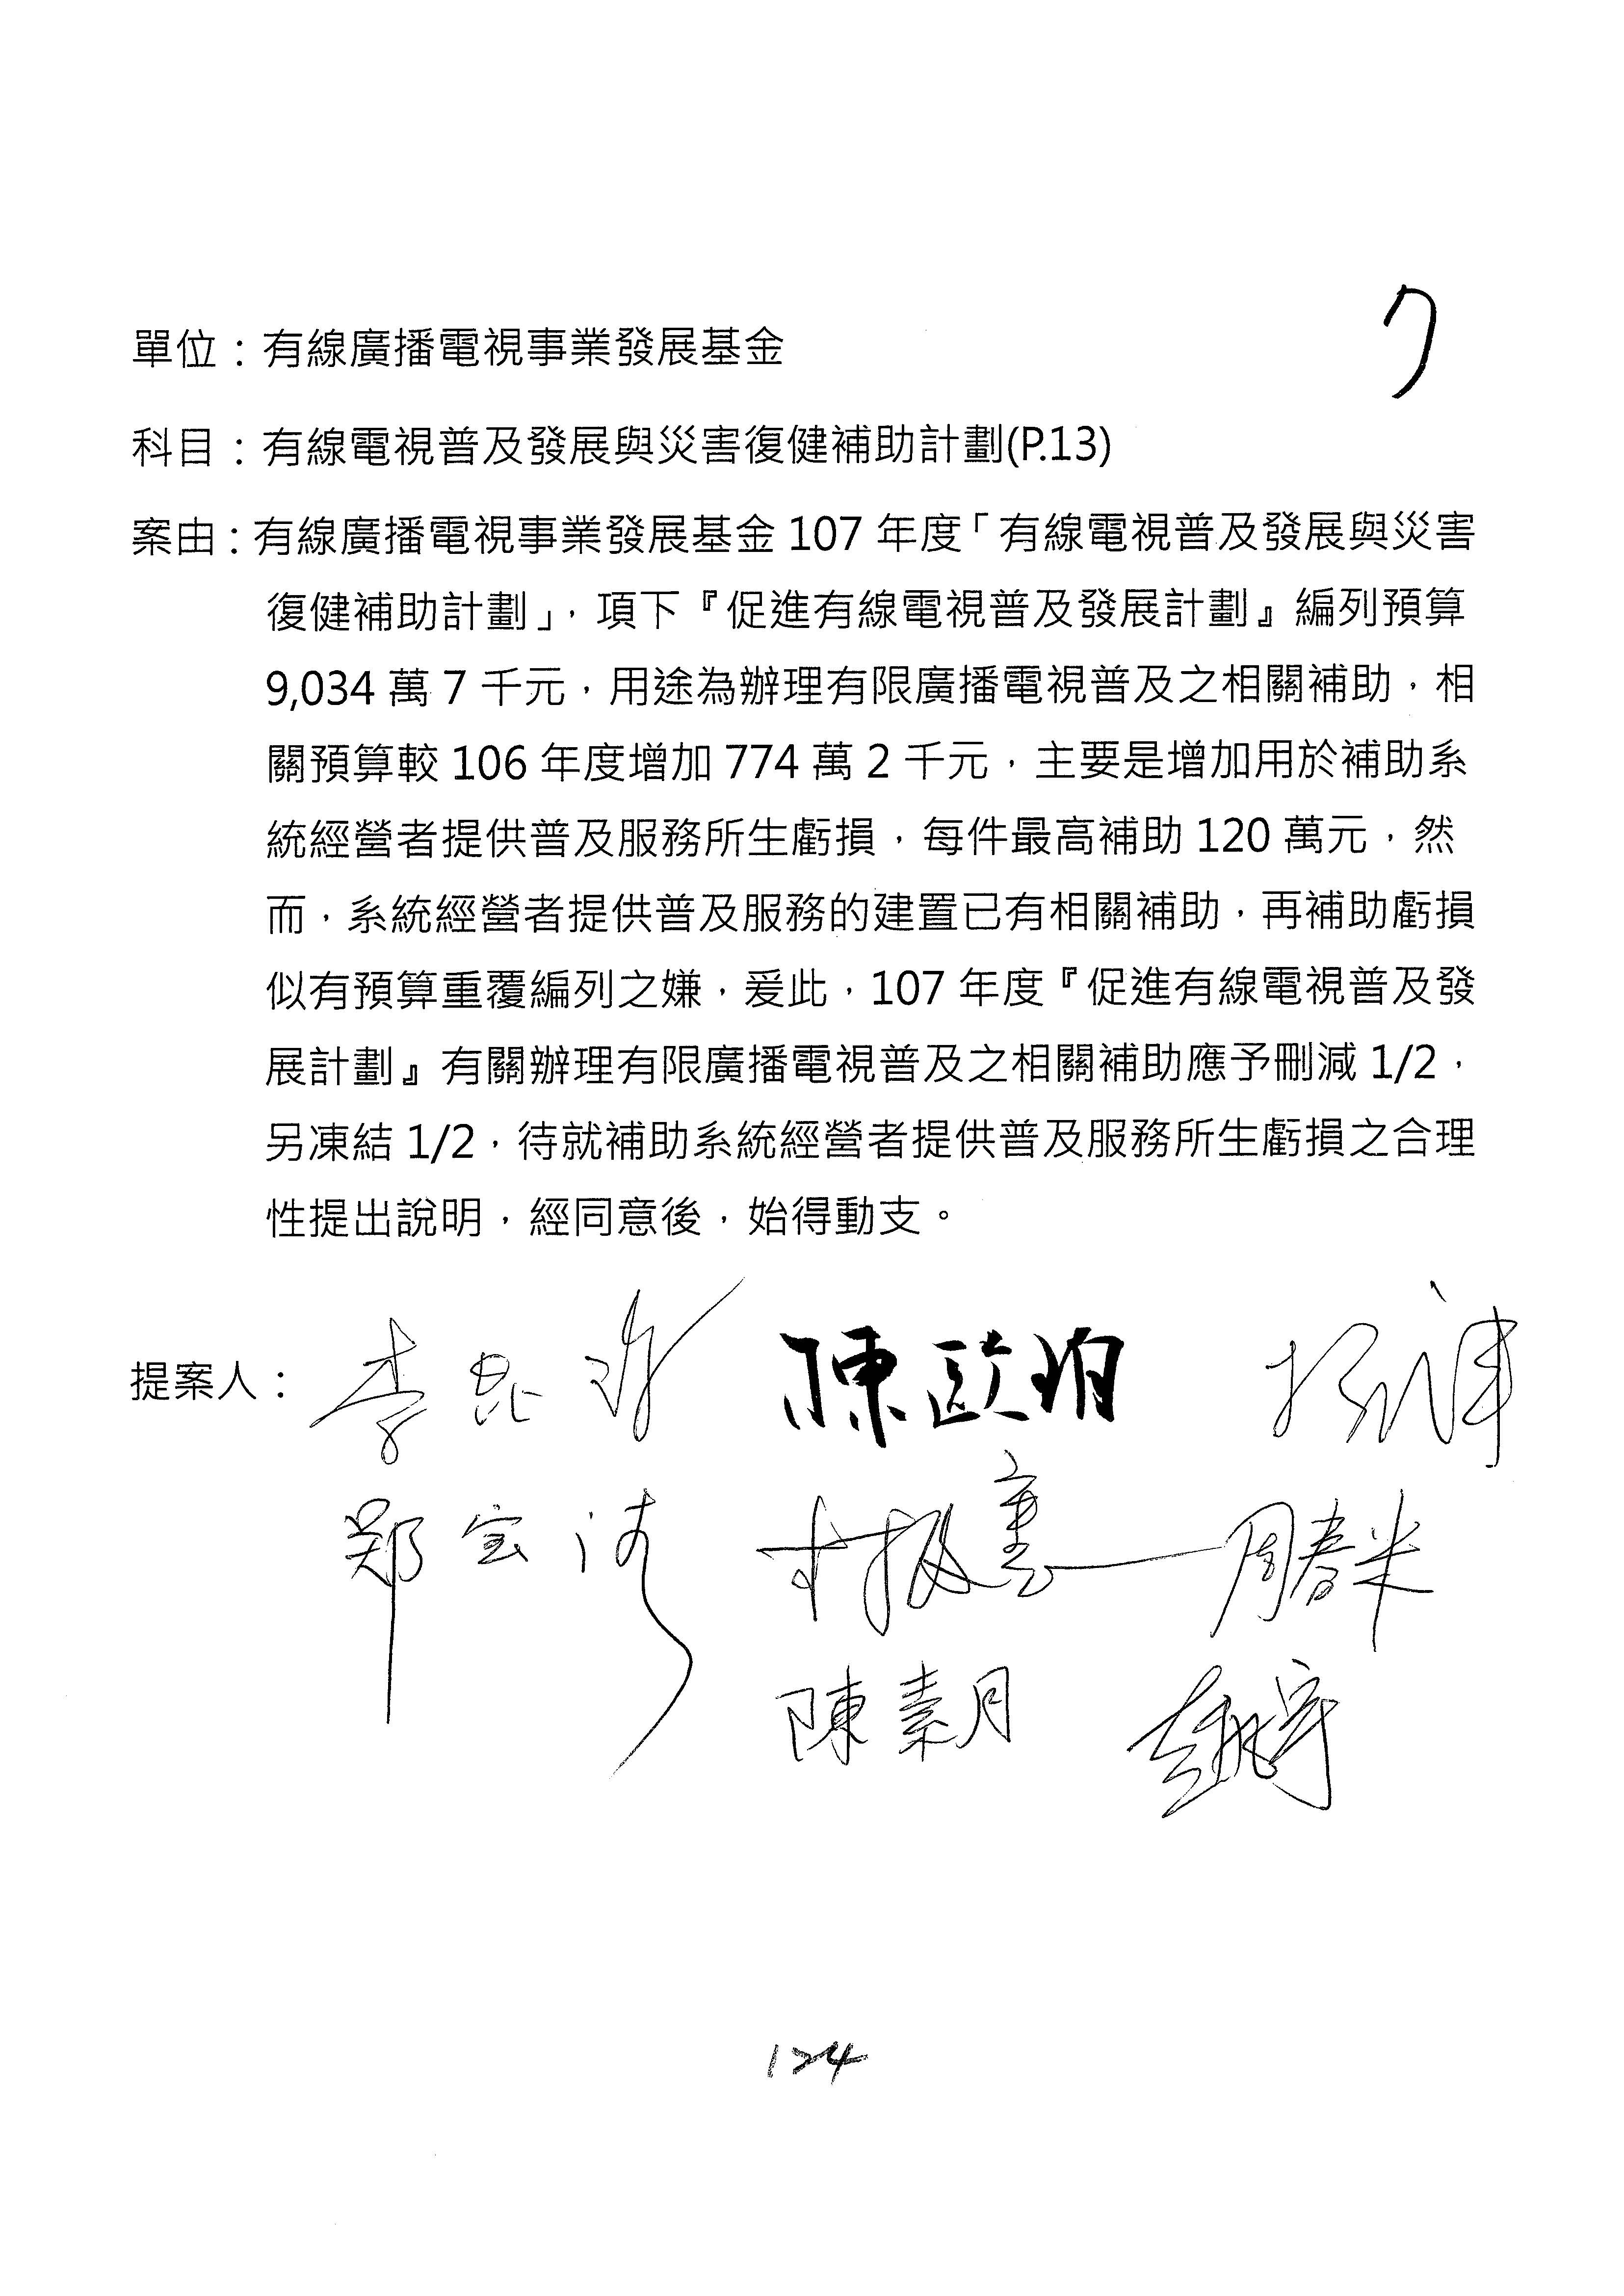 7
單位：有線廣播電視事業發展基金
科目：有線電視普及發展與災害復健補助計劃(P.13)
案由：有線廣播電視事業發展基金 107 年度「有線電視普及發展與災害
復健補助計劃」，項下『促進有線電視普及發展計劃』編列預算
9,034 萬 7 千元，用途為辦理有限廣播電視普及之相關補助，相
關預算較 106 年度增加 774 萬 2 千元，主要是增加用於補助系
統經營者提供普及服務所生虧損，每件最高補助 120 萬元，然
而，系統經營者提供普及服務的建置已有相關補助，再補助虧損
似有預算重覆編列之嫌，爰此，107 年度『促進有線電視普及發
展計劃』有關辦理有限廣播電視普及之相關補助應予刪減 1/2，
另凍結 1/2，待就補助系統經營者提供普及服務所生虧損之合理
性提出說明，經同意後，始得動支。
提案人：李昆澤 陳歐珀
鄭宝清 周春米
陳素月
124